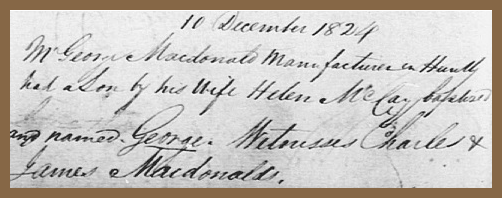 10 December 1824
Mr George Macdonald Manufacturer in Huntly
had a Son by his Wife Helen McCay baptized
and named George. Witnesses Charles &
James Macdonalds.